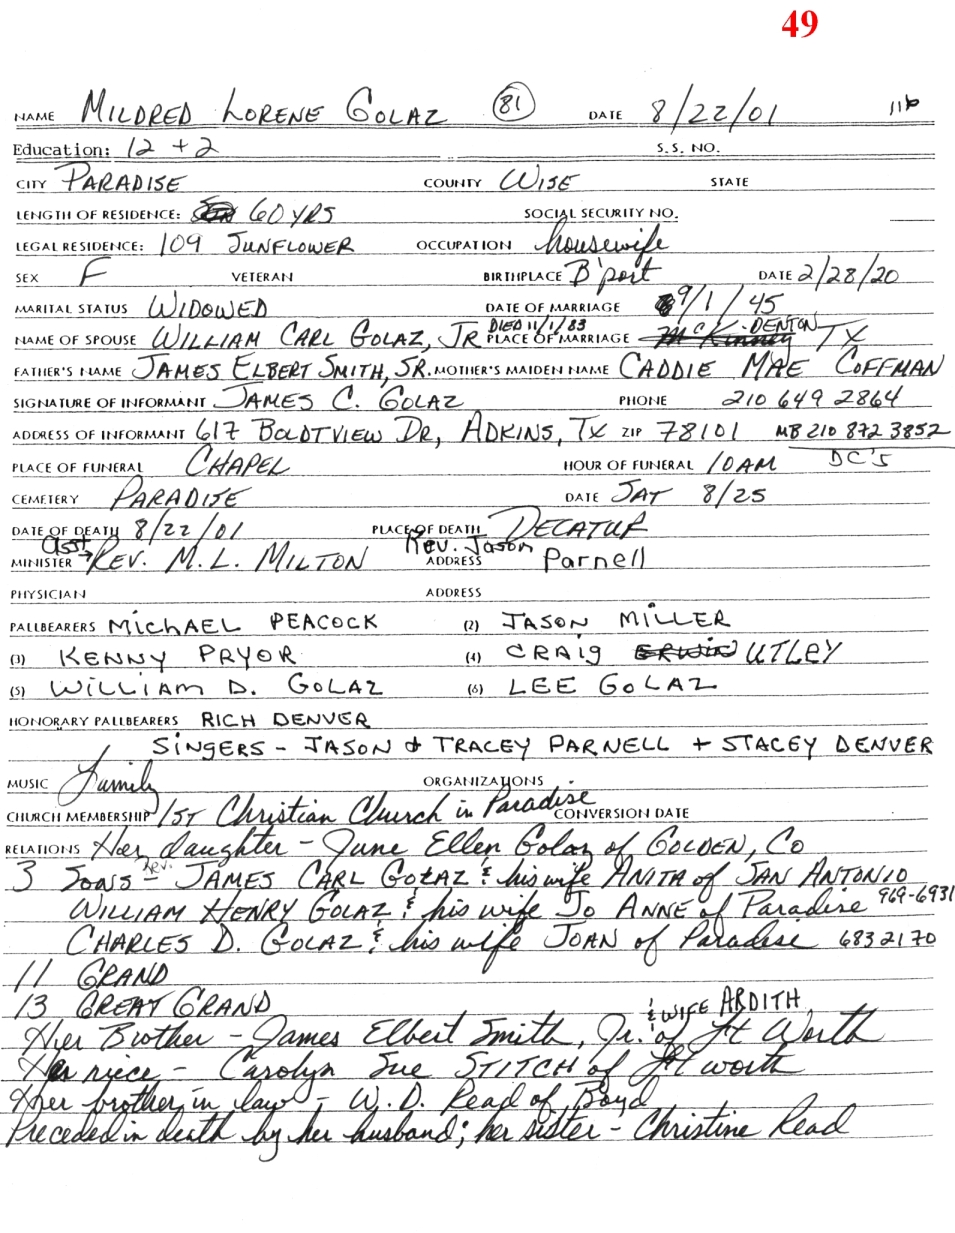 49
NAME MILDRED LORENE GOLAZ 81 DATE 8/22/01 116
Education: 12 + 2 S.S. NO.
CITY PARADISE COUNTY WISE STATE
LENGTH OF RESIDENCE: 60 YRS SOCIAL SECURITY NO.
LEGAL RESIDENCE: 109 SUNFLOWER OCCUPATION housewife
SEX F VETERAN BIRTHPLACE B'port DATE 2/28/20
MARITAL STATUS WIDOWED DATE OF MARRIAGE 9/1/45
NAME OF SPOUSE WILLIAM CARL GOLAZ, JR DIED 11/1/83 PLACE OF MARRIAGE McKinney DENTON TX
FATHER'S NAME JAMES ELBERT SMITH, SR. MOTHER'S MAIDEN NAME CADDIE MAE COFFMAN
SIGNATURE OF INFORMANT JAMES C. GOLAZ PHONE 210 649 2864
ADDRESS OF INFORMANT 617 BOLDTVIEW DR, ADKINS, TX ZIP 78101 MB 210 872 3852
PLACE OF FUNERAL CHAPEL HOUR OF FUNERAL 10AM DC'S
CEMETERY PARADISE DATE SAT 8/25
DATE OF DEATH 8/22/01 PLACE OF DEATH DECATUR
asst Rev. Jason
MINISTER REV. M. L. MILTON ADDRESS Parnell
PHYSICIAN ADDRESS
PALLBEARERS MICHAEL PEACOCK (2) JASON MILLER
(3) KENNY PRYOR (4) CRAIG ERWIN UTLEY
(5) WILLIAM D. GOLAZ (6) LEE GOLAZ
HONORARY PALLBEARERS RICH DENVER
SINGERS - JASON & TRACEY PARNELL + STACEY DENVER
MUSIC Family ORGANIZATIONS
CHURCH MEMBERSHIP 1ST Christian Church in Paradise CONVERSION DATE
RELATIONS Her daughter - June Ellen Golaz of GOLDEN, CO
3 SONS - Rev. JAMES CARL GOLAZ & his wife ANITA of SAN ANTONIO
WILLIAM HENRY GOLAZ & his wife JO ANNE of Paradise 969-6931
CHARLES D. GOLAZ & his wife JOAN of Paradise 683 2170
11 GRAND
13 GREAT GRAND
& WIFE ARDITH
Her Brother - James Elbert Smith, Jr. of Ft Worth
Her niece - Carolyn Sue STITCH of Ft Worth
Her brother in law - W. D. Read of Boyd
Preceded in death by her husband; her sister - Christine Read